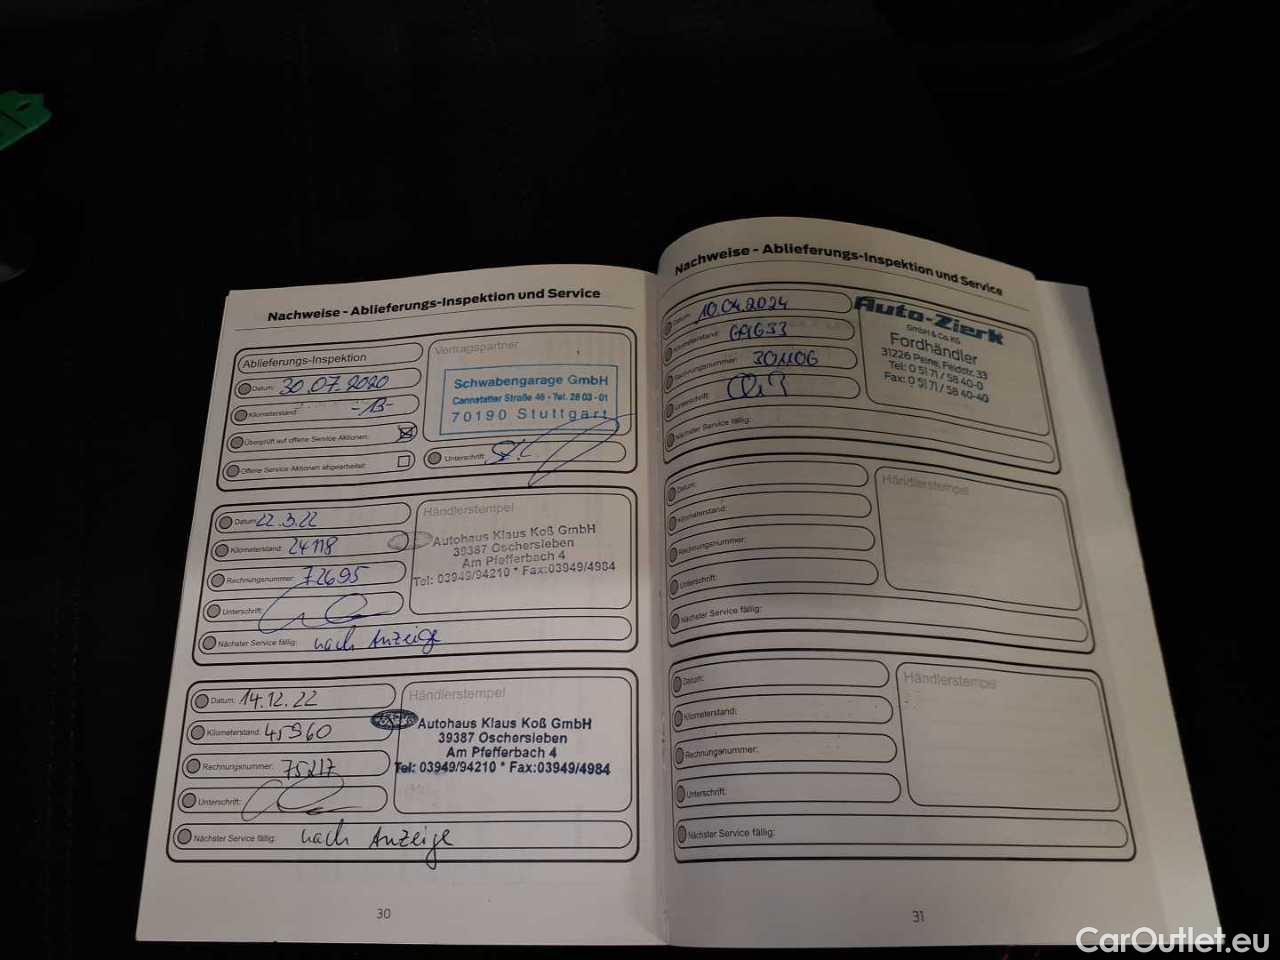 Nachweise - Ablieferungs-Inspektion und Service
Ablieferungs-Inspektion
Datum: 30.07.2020
Kilometerstand: -13-
Überprüft auf offene Service Aktionen:
Offene Service Aktionen abgearbeitet:
Vertragspartner
Schwabengarage GmbH
Cannstatter Straße 46 - Tel. 28 03 - 01
70190 Stuttgart
Unterschrift:
Datum: 22.3.22
Kilometerstand: 24118
Rechnungsnummer: 72695
Unterschrift:
Nächster Service fällig: nach Anzeige
Händlerstempel
Autohaus Klaus Koß GmbH
39387 Oschersleben
Am Pfefferbach 4
Tel: 03949/94210 * Fax:03949/4984
Datum: 14.12.22
Kilometerstand: 45960
Rechnungsnummer: 75217
Unterschrift:
Nächster Service fällig: nach Anzeige
Händlerstempel
Autohaus Klaus Koß GmbH
39387 Oschersleben
Am Pfefferbach 4
Tel: 03949/94210 * Fax:03949/4984
30
Nachweise - Ablieferungs-Inspektion und Service
Datum: 10.04.2024
Kilometerstand: 69633
Rechnungsnummer: 301106
Unterschrift:
Nächster Service fällig:
Auto-Zierk
GmbH & Co. KG
Fordhändler
31226 Peine, Feldstr. 33
Tel: 0 51 71 / 58 40-0
Fax: 0 51 71 / 58 40-40
Datum:
Kilometerstand:
Rechnungsnummer:
Unterschrift:
Nächster Service fällig:
Händlerstempel
Datum:
Kilometerstand:
Rechnungsnummer:
Unterschrift:
Nächster Service fällig:
Händlerstempel
31
CarOutlet.eu